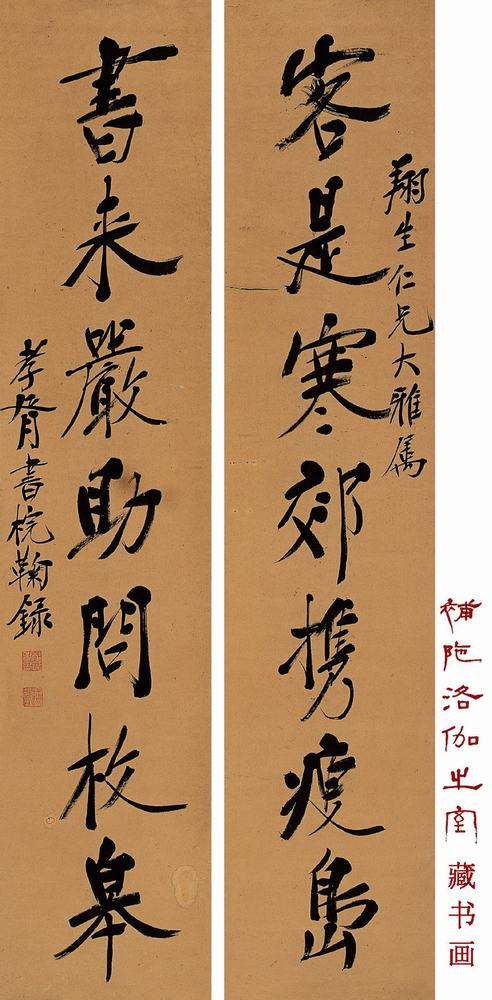 翔生仁兄大雅属
客是寒郊携瘦島
書来嚴助問枚皋
孝胥書梡鞠録
補陁洛伽之室藏书画